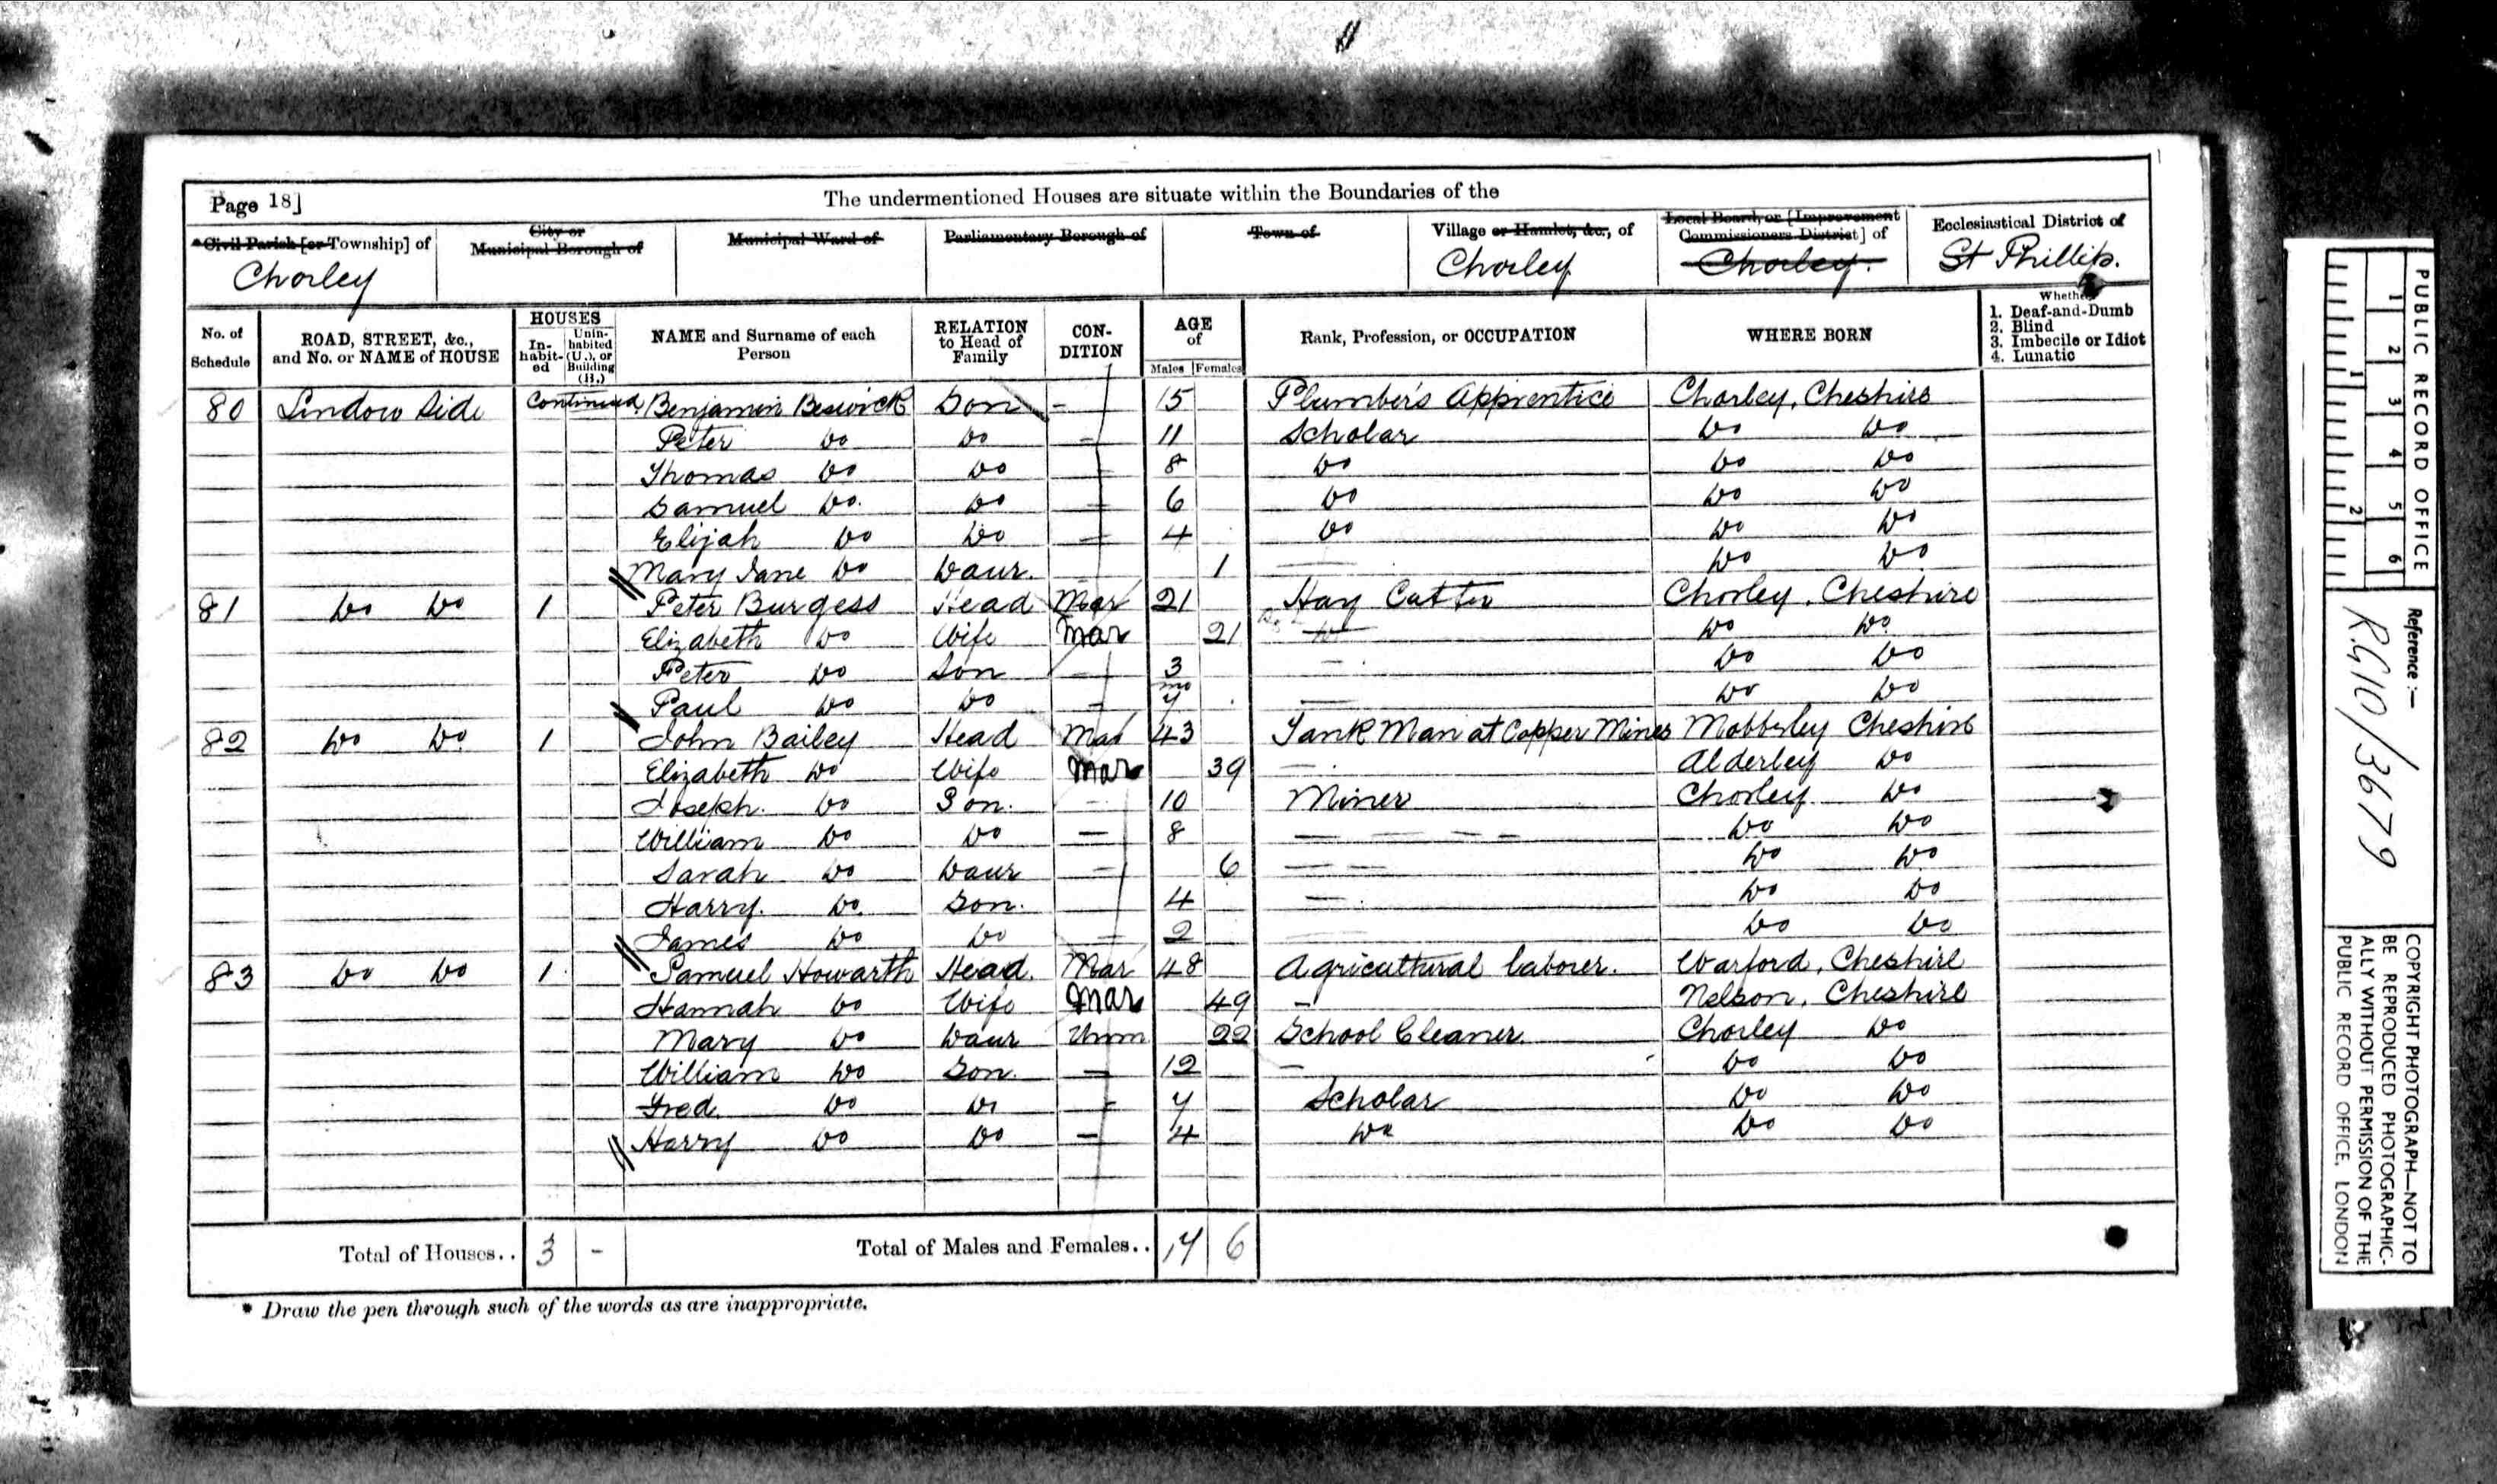 Page 18]
The undermentioned Houses are situate within the Boundaries of the
*Civil Parish [or Township] of
City or Municipal Borough of
Municipal Ward of
Parliamentary Borough of
Town of
Village or Hamlet, &c., of
Local Board, or [Improvement Commissioners District] of
Ecclesiastical District of
Chorley
Chorley
Chorley.
St Phillips.
No. of Schedule
ROAD, STREET, &c., and No. or NAME of HOUSE
HOUSES
In-habit-ed
Unin-habited (U.), or Building (B.)
NAME and Surname of each Person
RELATION to Head of Family
CON-DITION
AGE of
Males
Females
Rank, Profession, or OCCUPATION
WHERE BORN
Whether
1. Deaf-and-Dumb
2. Blind
3. Imbecile or Idiot
4. Lunatic
80 Lindow Side Continued Benjamin Beswick Son - 15 Plumber's Apprentice Chorley, Cheshire
Peter Do Do - 11 Scholar Do Do
Thomas Do Do - 8 Do Do Do
Samuel Do. Do - 6 Do Do Do
Elijah Do Do - 4 Do Do Do
Mary Jane Do Daur. 1 Do Do
81 Do Do 1 Peter Burgess Head Mar 21 Hay Cutter Chorley, Cheshire
Elizabeth Do Wife Mar 21 Do Do
Peter Do Son - 3 - Do Do
Paul Do Do - mo 7 - Do Do
82 Do Do 1 John Bailey Head Mar 43 Tank Man at Copper Mines Mobberley Cheshire
Elizabeth Do Wife Mar 39 - Alderley Do
Joseph. Do Son. - 10 Miner Chorley Do
William Do Do - 8 - - - - Do Do
Sarah Do Daur - 6 - - Do Do
Harry. Do. Son. 4 - Do Do
James Do Do - 2 Do Do
83 Do Do 1 Samuel Howarth Head. Mar 48 Agricultural laborer. Warford, Cheshire
Hannah Do Wife Mar 49 - Nelson, Cheshire
Mary Do Daur Unm 22 School Cleaner Chorley Do
William Do Son. - 12 - Do Do
Fred. Do Do - 7 Scholar Do Do
Harry Do Do - 4 Do Do Do
Total of Houses.. 3 -
Total of Males and Females.. 17 6
* Draw the pen through such of the words as are inappropriate.
PUBLIC RECORD OFFICE
1 2 3 4 5 6
1 2
Reference :-
R.G 10/3679
COPYRIGHT PHOTOGRAPH—NOT TO
BE REPRODUCED PHOTOGRAPHIC-
ALLY WITHOUT PERMISSION OF THE
PUBLIC RECORD OFFICE, LONDON